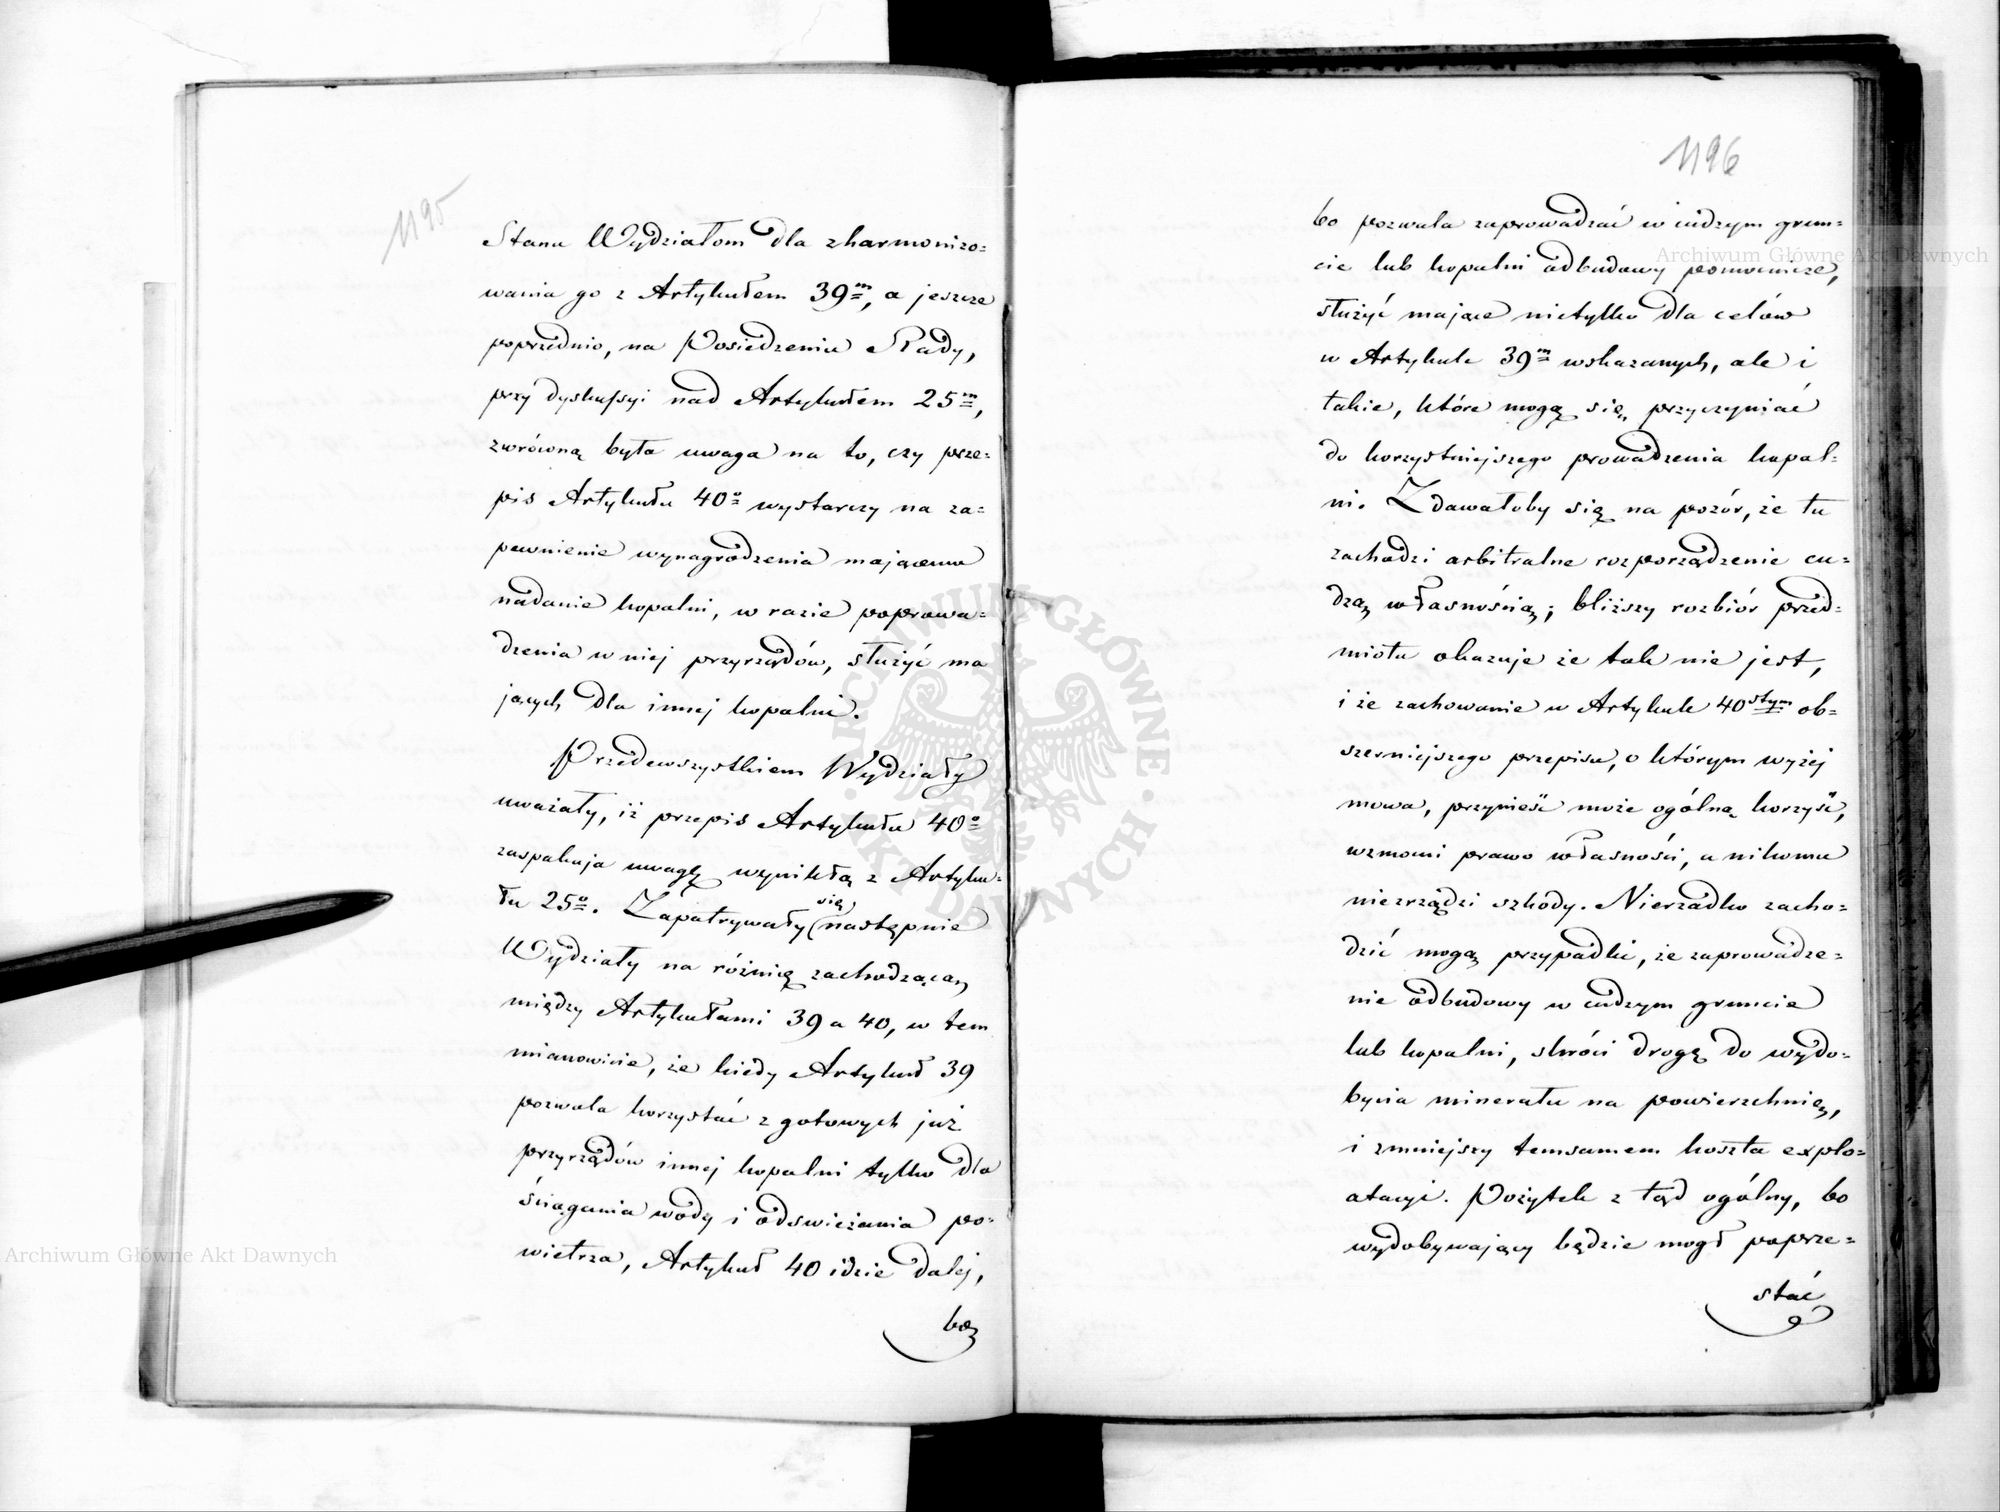 1195
Stanu Wydziałom dla zharmonizo=
wania go z Artykułem 39m, a jeszcze
poprzednio, na Posiedzeniu Rady,
przy dyskussyi nad Artykułem 25m,
zwróconą była uwaga na to, czy prze=
pis Artykułu 40o wystarczy na za=
pewnienie wynagrodzenia mającemu
nadanie kopalni, w razie poprowa=
dzenia w niej przyrządów, służyć ma
jących dla innej kopalni.
Przedewszystkiem Wydziały
uważały, iż przepis Artykułu 40o
zaspakaja uwagę wynikłą z Artyku=
łu 25o. Zapatrywały się następnie
Wydziały na różnicę zachodzącą
między Artykułami 39 a 40, w tem
mianowicie, że kiedy Artykuł 39
pozwala korzystać z gotowych już
przyrządów innej kopalni tylko dla
ściągania wody i odświeżania po=
wietrza, Artykuł 40 idzie dalej,
bo
1196
bo pozwala zaprowadzać w cudzym grun=
cie lub kopalni odbudowy pomocnicze,
służyć mające nietylko dla celów
w Artykule 39m wskazanych, ale i
takie, które mogą się przyczyniać
do korzystniejszego prowadzenia kopal=
ni. Zdawałoby się na pozór, że tu
zachodzi arbitralne rozporządzenie cu=
dzą własnością; bliższy rozbiór przed=
miotu okazuje że tak nie jest,
i że zachowanie w Artykule 40stym ob=
szerniejszego przepisu, o którym wyżej
mowa, przynieść może ogólną korzyść,
wzmocni prawo własności, a nikomu
niezrządzi szkody. Nierzadko zacho=
dzić mogą przypadki, że zaprowadze=
nie odbudowy w cudzym gruncie
lub kopalni, skróci drogę do wydo=
bycia minerału na powierzchnię,
i zmniejszy temsamem koszta explo=
atacyi. Pożytek z tąd ogólny, bo
wydobywający będzie mógł poprze=
stać
Archiwum Główne Akt Dawnych
Archiwum Główne Akt Dawnych
ARCHIWUM GŁÓWNE AKT DAWNYCH